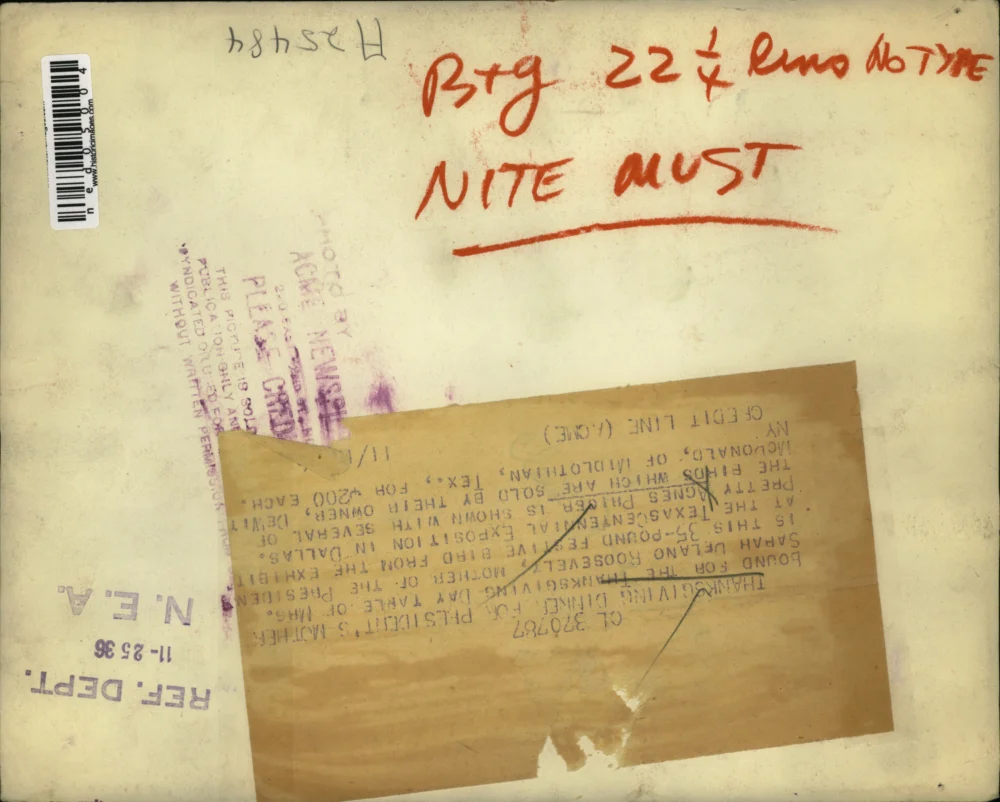 A25484
B+g 22 1/4 lino No TYPE
NITE MUST
ned05004
www.historicimages.com
PHOTO BY
ACME NEWS
PLEASE CRED
THIS PICTURE IS SOLD
PUBLICATION ONLY AN
SYNDICATED OR USED FO
WITHOUT WRITTEN PERMISSION FROM
CL 370787
THANKSGIVING DINNER FOR PRESIDENT'S MOTHER
BOUND FOR THE THANKSGIVING DAY TABLE OF MRS.
SARAH DELANO ROOSEVELT, MOTHER OF THE PRESIDEN
IS THIS 35-POUND FESTIVE BIRD FROM THE EXHIBIT
AT THE TEXASCENTENNIAL EXPOSITION IN DALLAS.
PRETTY AGNES PRIGER IS SHOWN WITH SEVERAL OF
THE BIRDS WHICH ARE SOLD BY THEIR OWNER, DEWIT
MCDONALD, OF MIDLOTHIAN, TEX., FOR $200 EACH.
NY
CREDIT LINE (ACME) 11/1
REF. DEPT.
11-25 36
N. E. A.